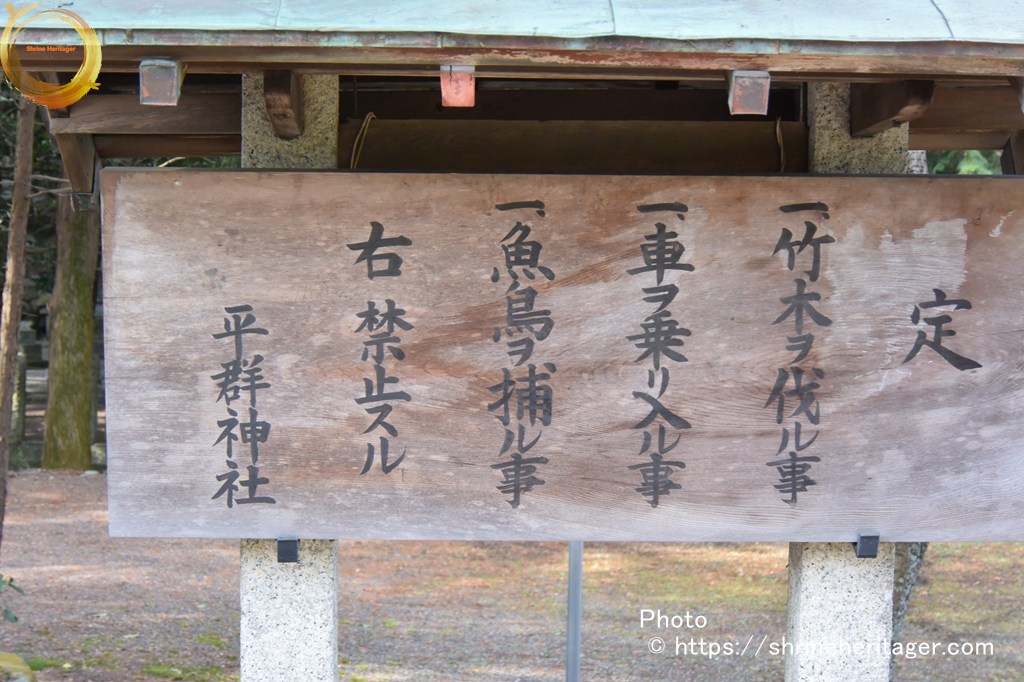 定
一、竹木ヲ伐ル事
一、車ヲ乗リ入ル事
一、魚鳥ヲ捕ル事
右禁止スル
平群神社
Shrine Heritager
Photo
© https://shrineheritager.com